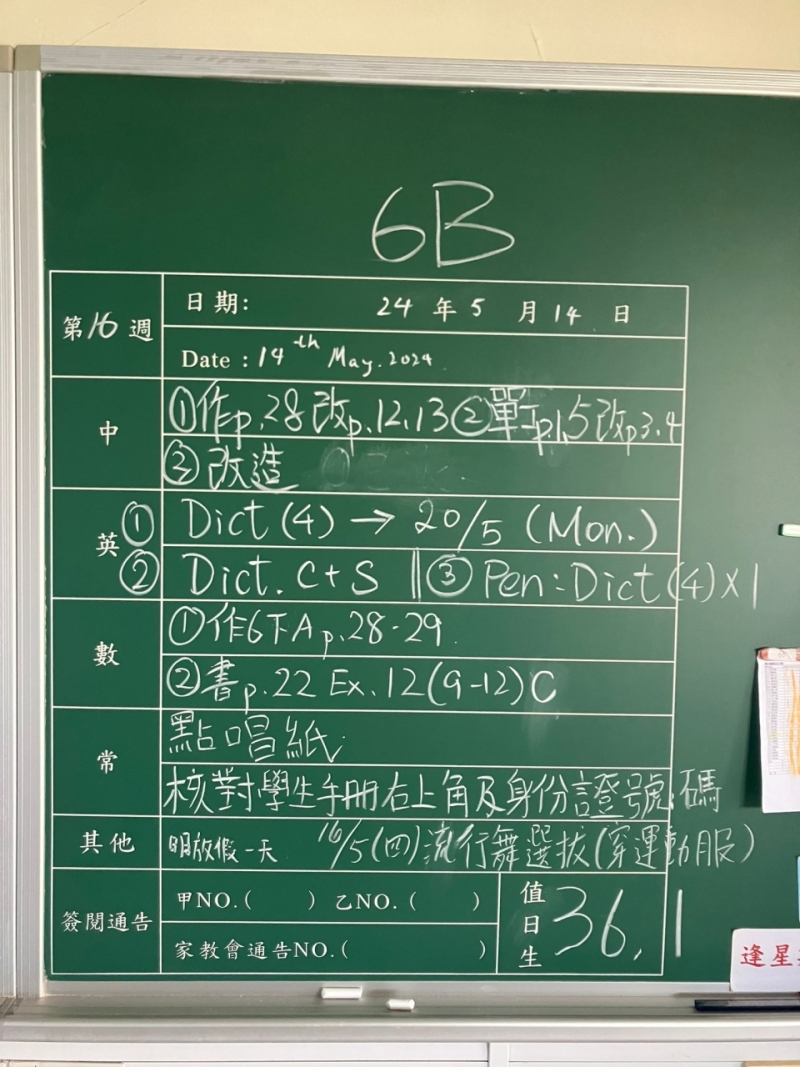 6B
第16週
日期: 24 年 5 月 14 日
Date : 14th May. 2024.
中
①作p.28改p.12,13②單工p.1,5改p3,4
③改造
英
① Dict (4) → 20/5 (Mon.)
② Dict. C+S ||③ Pen : Dict (4) x 1
數
①作6下A p.28-29.
②書p.22 Ex.12(9-12)C
常
點唱紙
核對學生手冊右上角及身份證號碼
其他
明放假一天 16/5(四)流行舞選拔(穿運動服)
簽閱通告
甲NO.( ) 乙NO.( )
家教會通告NO.( )
值日生 36,1
逢星